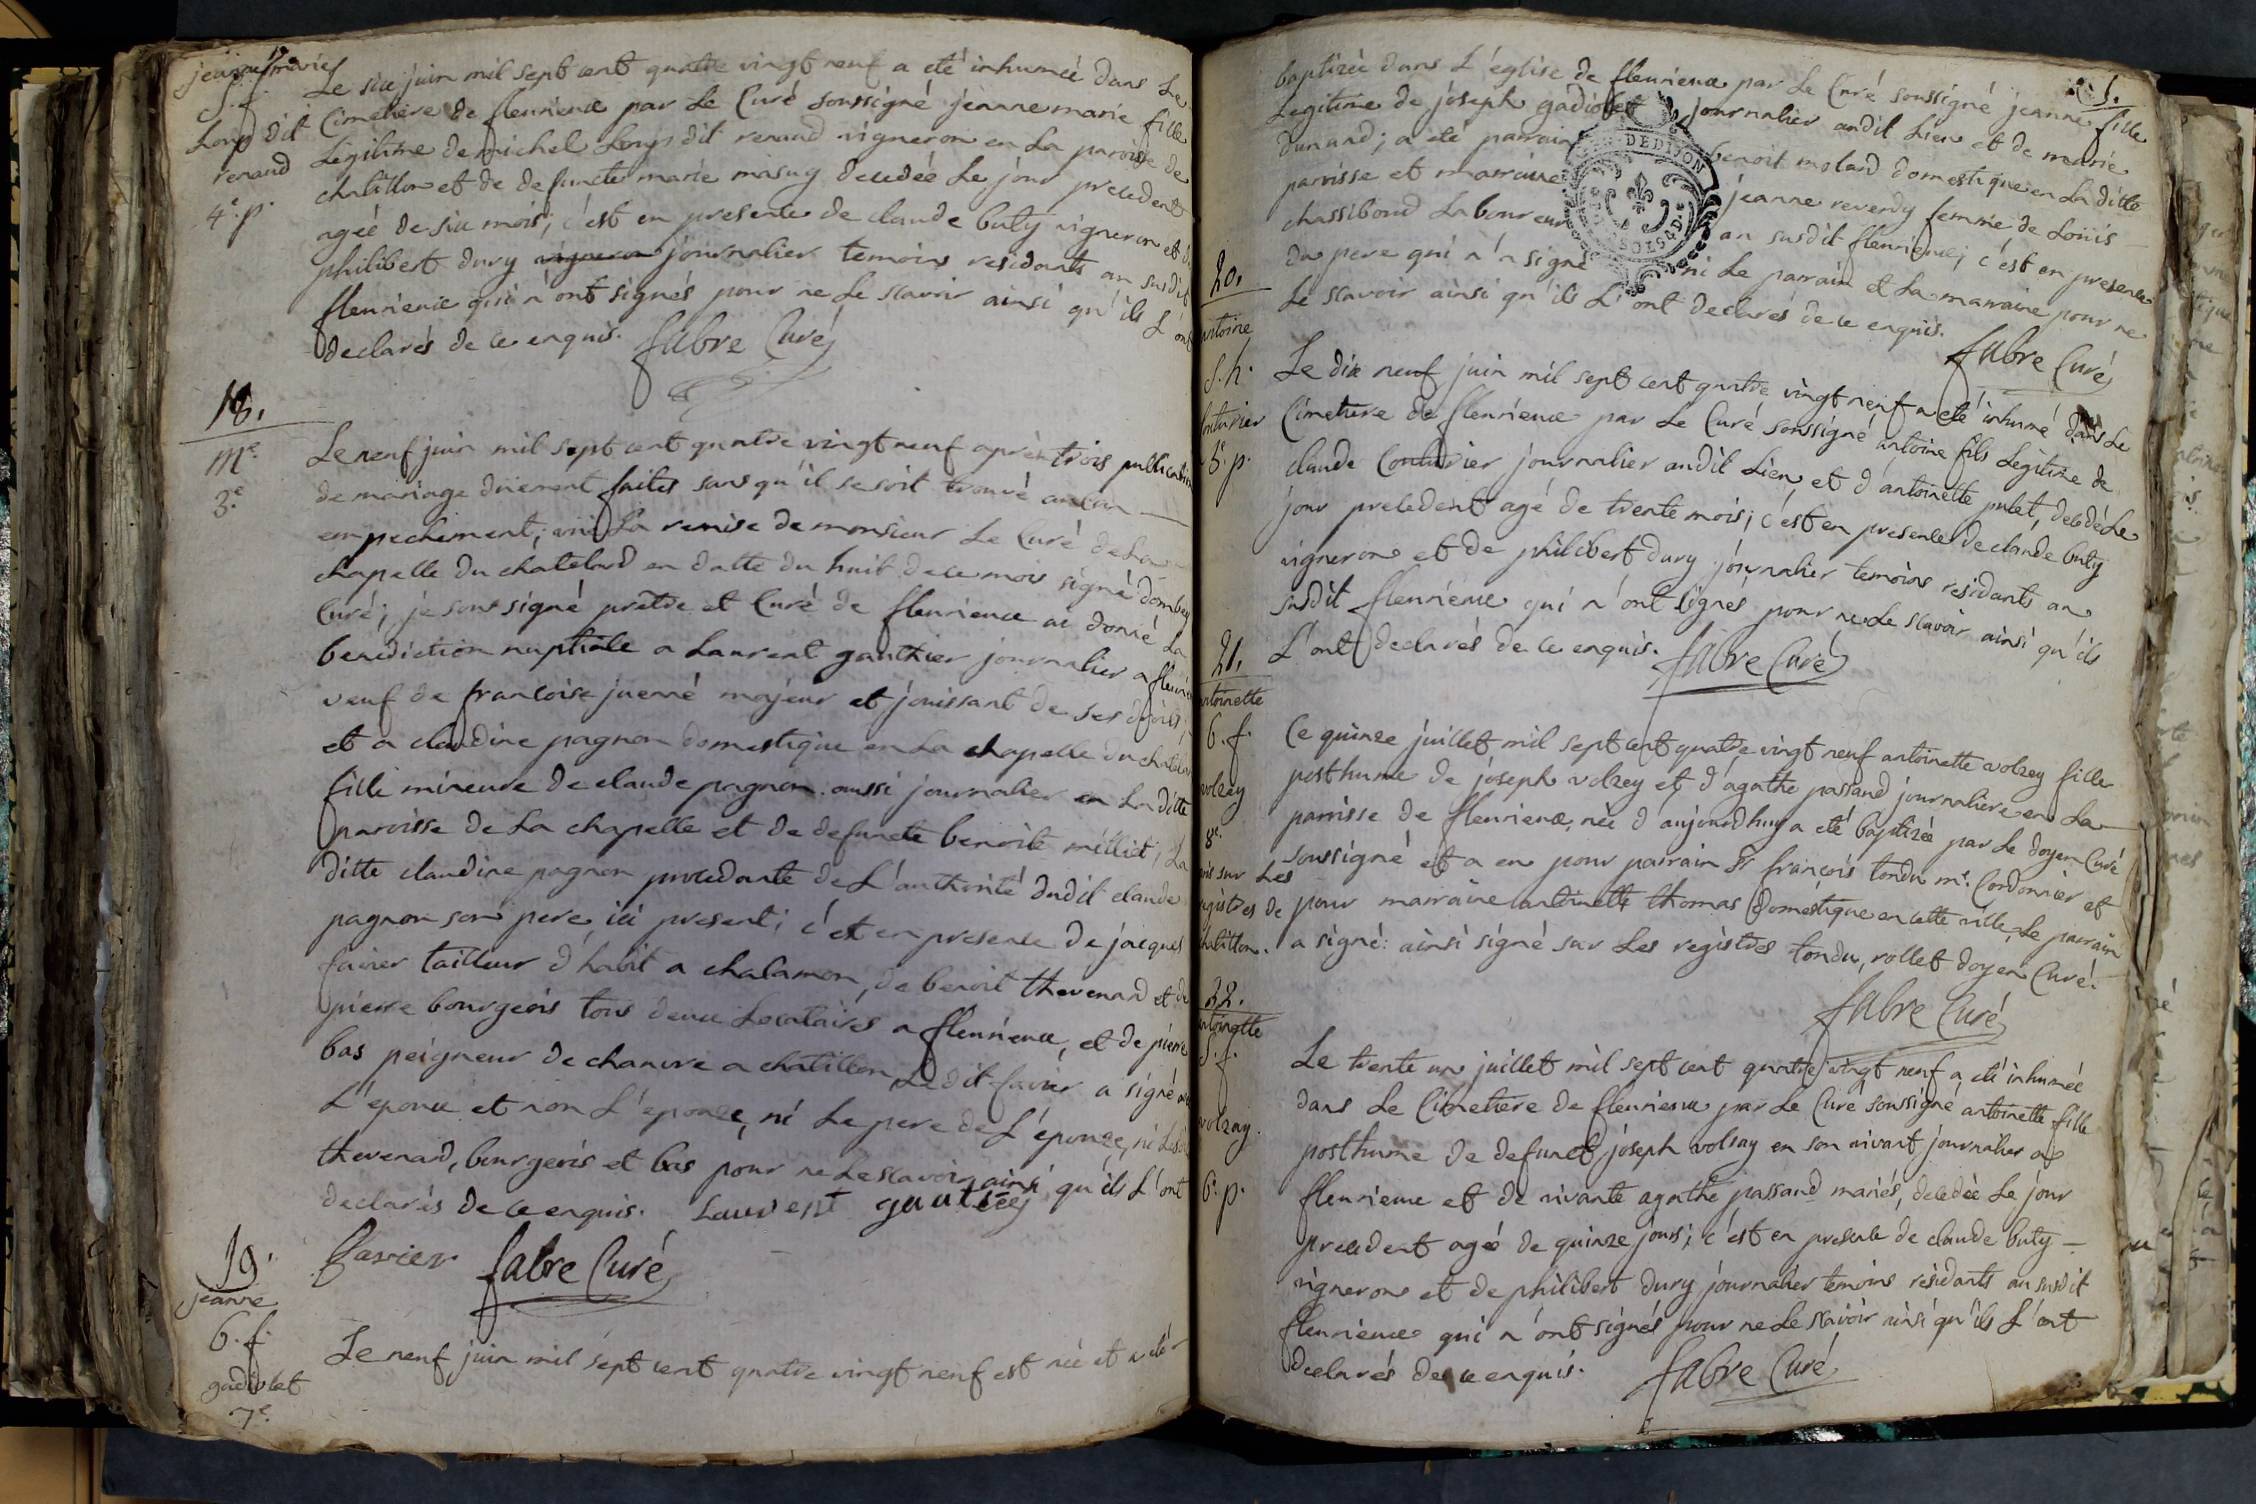 17
jeanne marie
S. f.
Loup dit
renaud
4e. p.
Le six juin mil sept cent quatre vingt neuf a eté inhumée dans Le
Cimetiere de fleurieux par Le Curé soussigné jeanne marie fille
Légitime de michel Loup dit renaud vigneron en La paroisse de
chatillon et de defuncte marie misuy decedée Le jour precedent
agée de six mois; c'est en presence de claude buty vigneron et de
philibert dury vigneron journalier temoins residants au susdit
fleurieux qui n'ont signés pour ne Le scavoir ainsi qu'ils L'ont
declarés de ce enquis. fabre Curé
18.
Me.
3e.
Le neuf juin mil sept cent quatre vingt neuf après trois publications
de mariage düement faites sans qu'il se soit trouvé aucun
empechement; vüe La remise de monsieur Le Curé de La
chapelle du chatelard en datte du huit de ce mois signé dombey
Curé; je soussigné prêtre et Curé de fleurieux ai donné La
benediction nuptiale a Laurent gauthier journalier a fleurieux
veuf de francoise juenné majeur et jouissant de ses droits,
et a claudine pagnon domestique en La chapelle du chatelard
fille mineure de claude pagnon aussi journalier en La ditte
paroisse de La chapelle et de defuncte benoite milliet; La
ditte claudine pagnon procedante de L'authorité dudit claude
pagnon son pere, ici present; c'est en presence de jacques
favier tailleur d'habit a chalamon, de benoit thevenard et de
pierre bourgeois tous deux Locataires a fleurieux, et de pierre
bas peigneur de chanvre a chatillon Ledit favier a signé avec
L'epoux et non L'epouze, ni Le pere de L'épouze, ni Lesd
thevenard, bourgeois et bas pour ne Le scavoir ainsi qu'ils L'ont
declarés de ce enquis. Laurent gautier
favier fabre Curé
19.
jeanne
b. f.
gadiolet
7e.
Le neuf juin mil sept cent quatre vingt neuf est née et a eté
baptizée dans L'église de fleurieux par Le Curé soussigné jeanne fille
Legitime de joseph gadiolet journalier audit Lieu et de marie
dunand; a eté parrain benoit molard domestique en La ditte
parroisse et marraine jeanne reverdy femme de Loüis
chassiboud Laboureur au susdit fleurieux; c'est en presence
du pere qui n'a signé ni Le parrain et La marraine pour ne
Le scavoir ainsi qu'ils L'ont declarés de ce enquis.
fabre Curé
DE DIJON
20.
antoine
S. h.
couturier
5e. p.
Le dix neuf juin mil sept cent quatre vingt neuf a eté inhumé dans Le
Cimetiere de fleurieux par Le Curé soussigné antoine fils Legitime de
claude Couturier journalier audit Lieu, et d'antoinette pulet, decedé Le
jour precedent agé de trente mois; c'est en presence de claude buty
vigneron et de philibert dury journalier temoins residants au
susdit fleurieux qui n'ont signés pour ne Le scavoir ainsi qu'ils
L'ont declarés de ce enquis. fabre Curé
21.
antoinette
b. f.
volzey
8e.
pris sur Les
registres de
chatillon.
Ce quinze juillet mil sept cent quatre vingt neuf antoinette volzey fille
posthume de joseph volzey et d'agathe passand journaliere en La
parroisse de fleurieux, née d'aujourdhuy a eté baptizée par Le doyen Curé
soussigné et a eu pour parrain Sr françois tondu me. Cordonnier et
pour marraine antoinette thomas domestique en cette ville, Le parrain
a signé: ainsi signé sur Les registres tondu, rollet doyen Curé.
fabre Curé
22.
antoinette
S. f.
volzay.
6e. p.
Le trente un juillet mil sept cent quatre vingt neuf a eté inhumée
dans Le Cimetiere de fleurieux par Le Curé soussigné antoinette fille
posthume de defunct joseph volsay en son vivant journalier a
fleurieux et de vivante agathe passand mariés, decedée Le jour
precedent agée de quinze jours; c'est en presence de claude buty
vigneron et de philibert dury journalier temoins residants au susdit
fleurieux qui n'ont signés pour ne Le scavoir ainsi qu'ils L'ont
declarés de ce enquis. fabre Curé